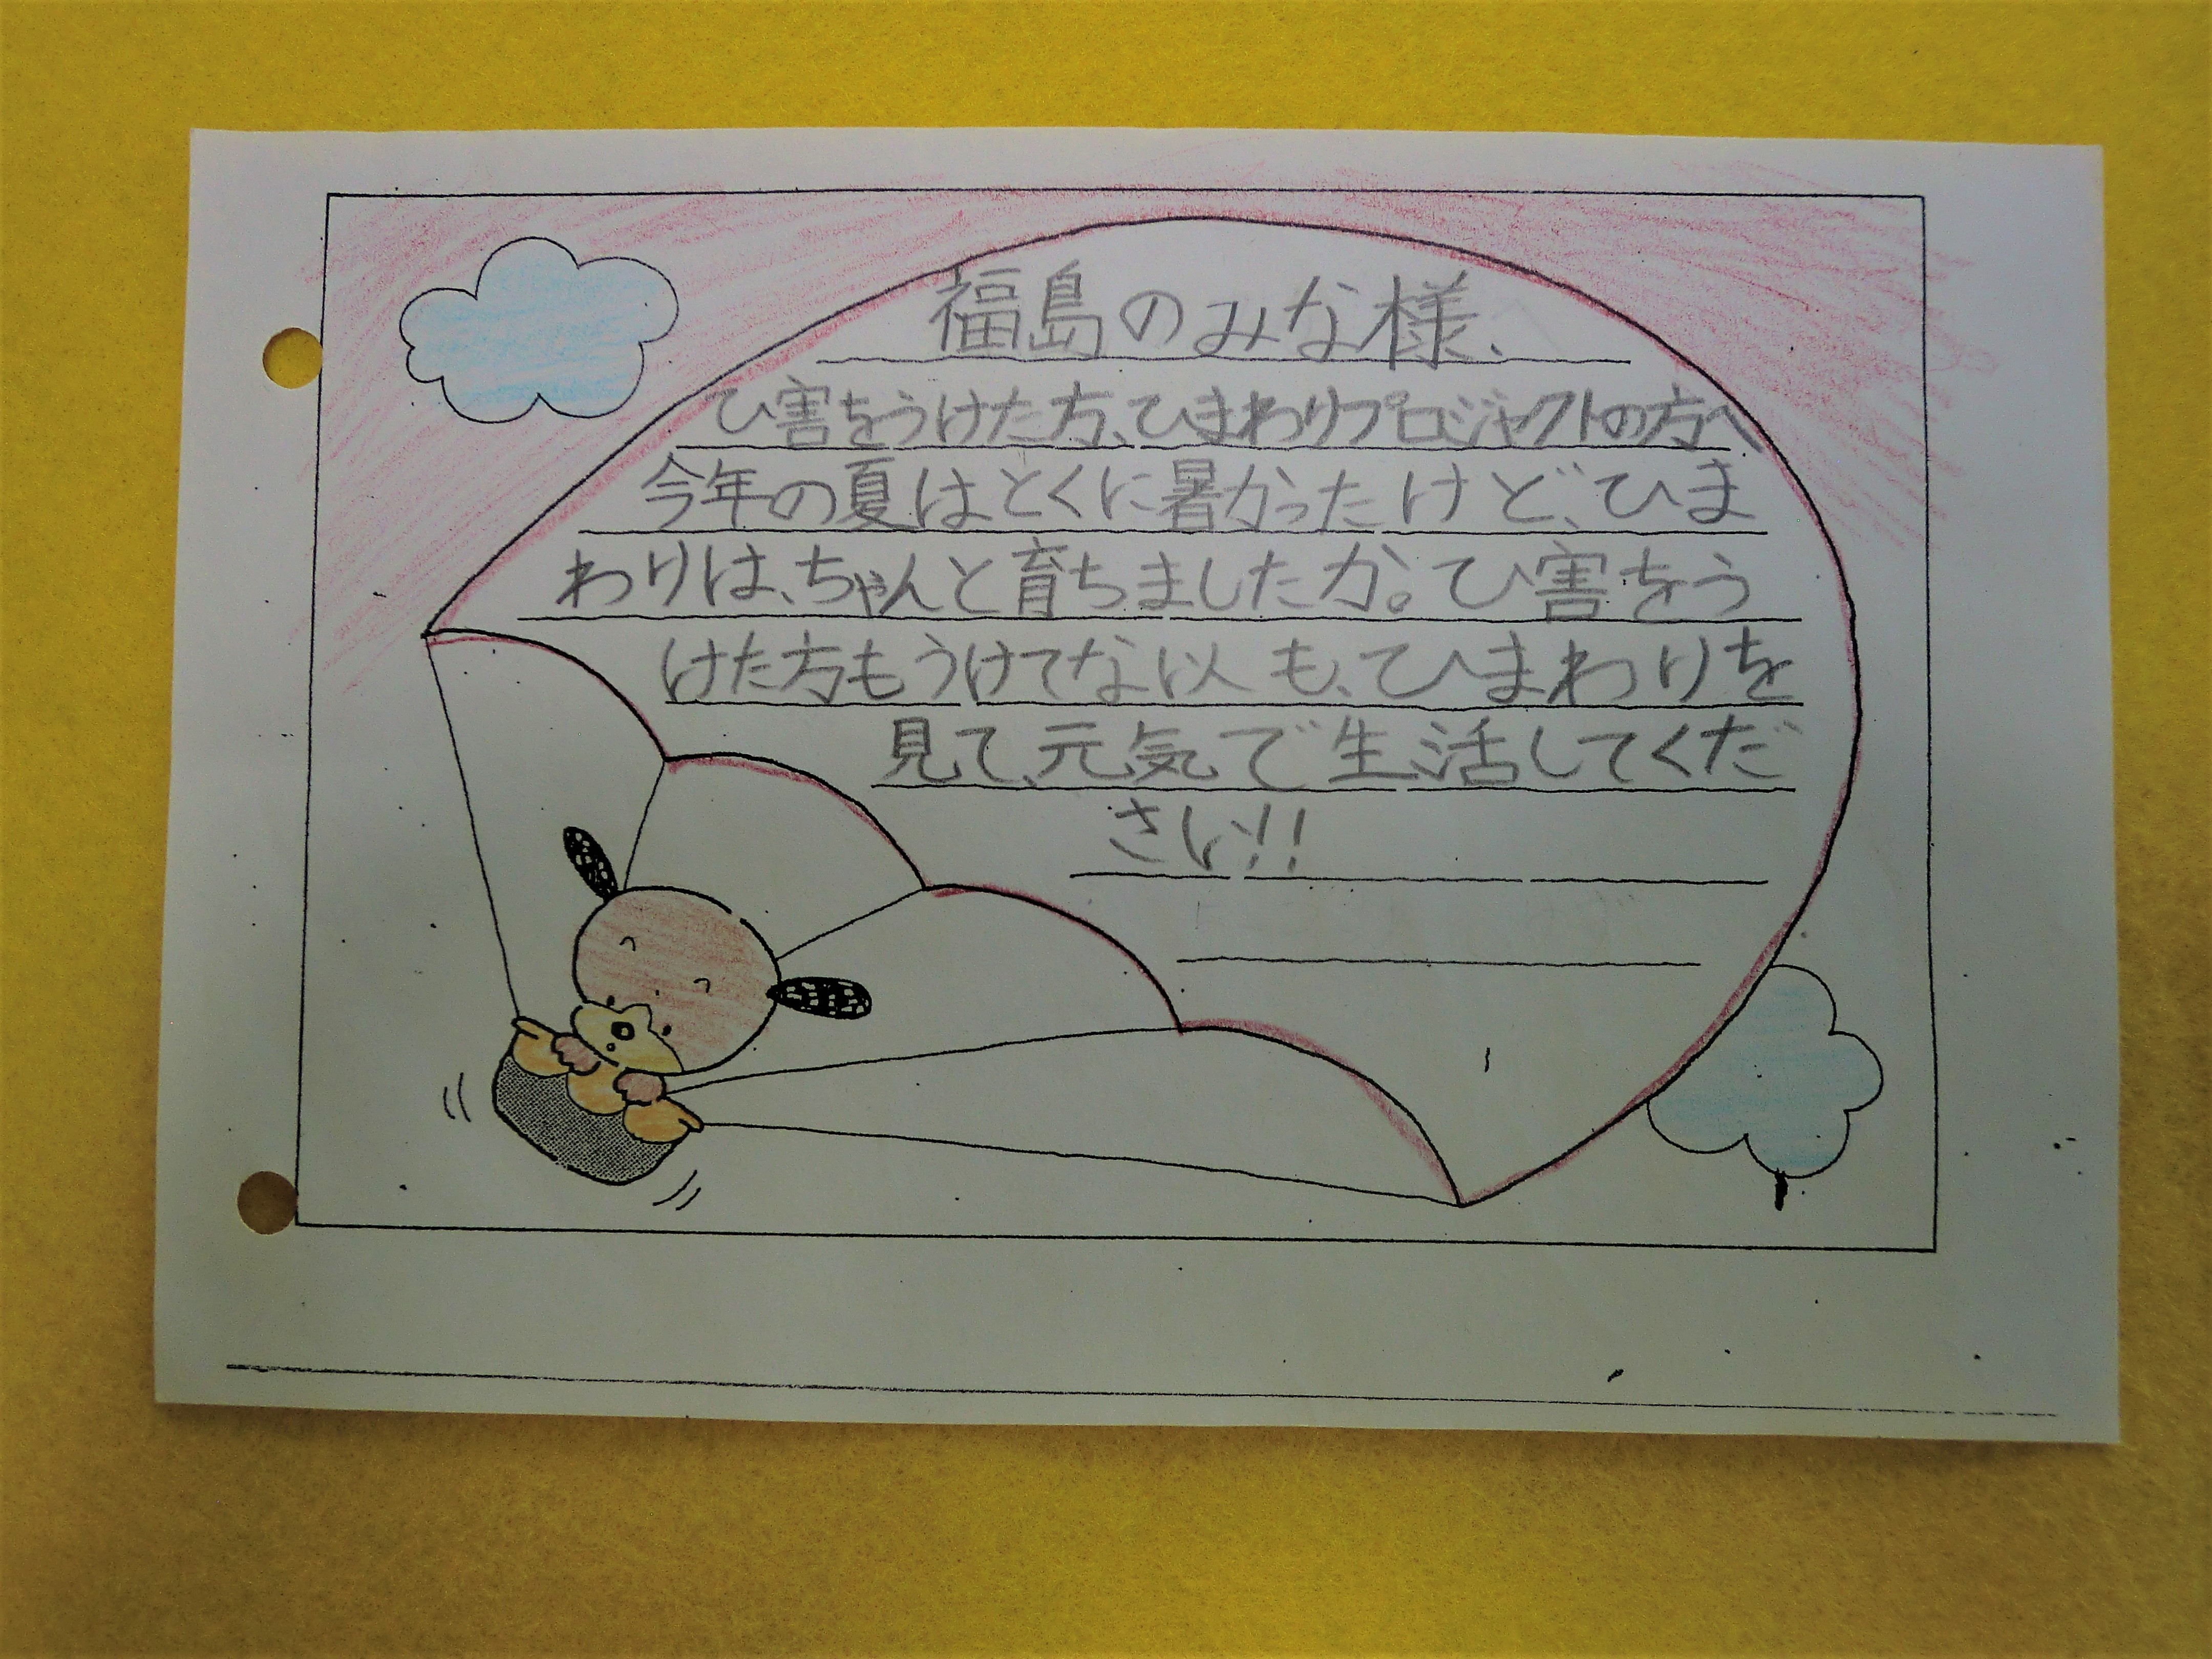 福島のみな様、
ひ害をうけた方、ひまわりプロジャクトの方へ
今年の夏はとくに暑かったけど、ひま
わりは、ちゃんと育ちましたか。ひ害をう
けた方もうけてない人も、ひまわりを
見て、元気で生活してくだ
さい!!